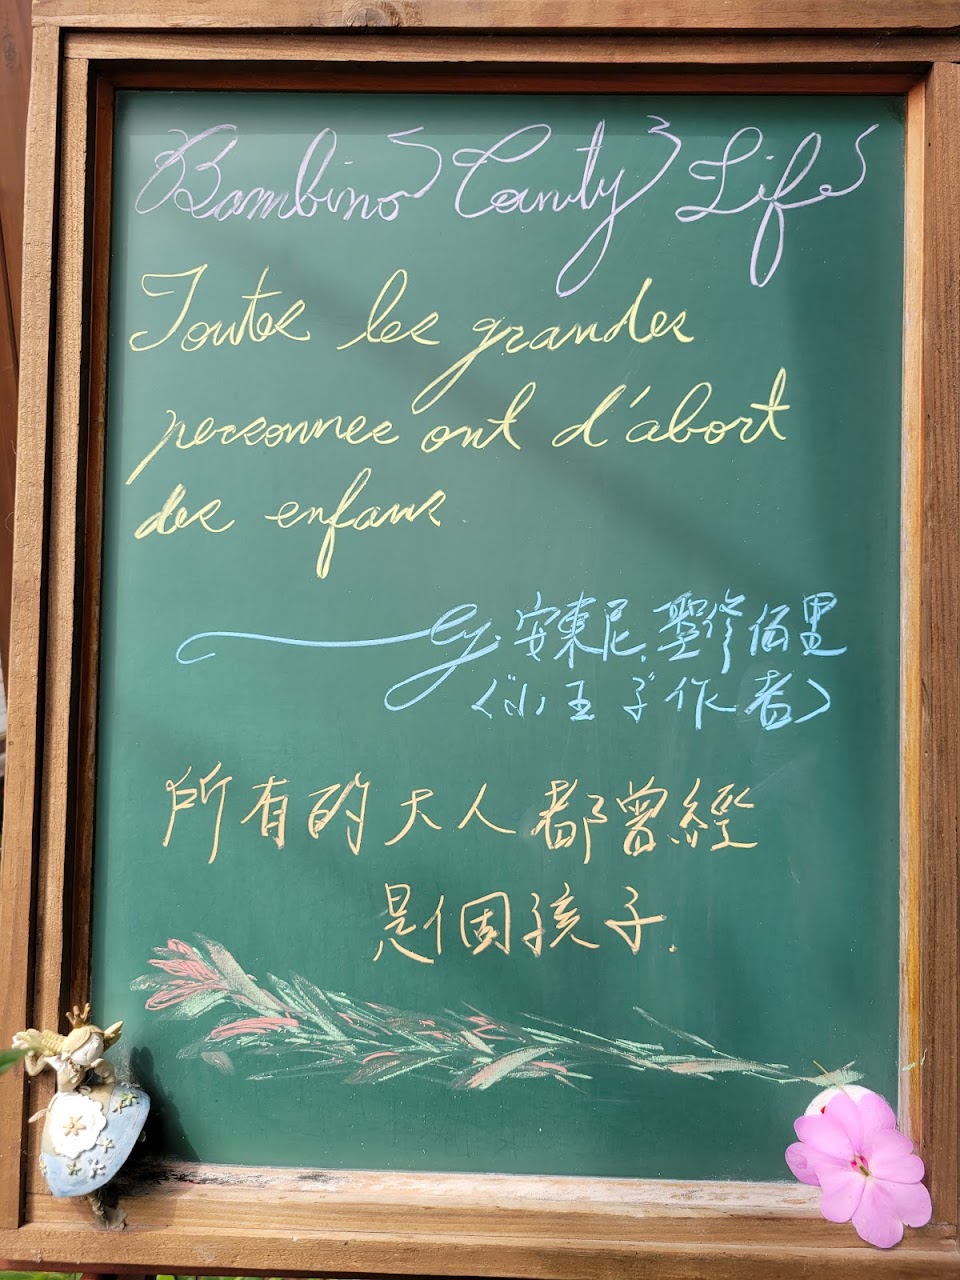 Bambino Candy Life
Toutes les grandes
personnes ont d'abort
des enfans
by. 安東尼.聖修佰里
〈"小王子"作者〉
所有的大人都曾經
是個孩子.